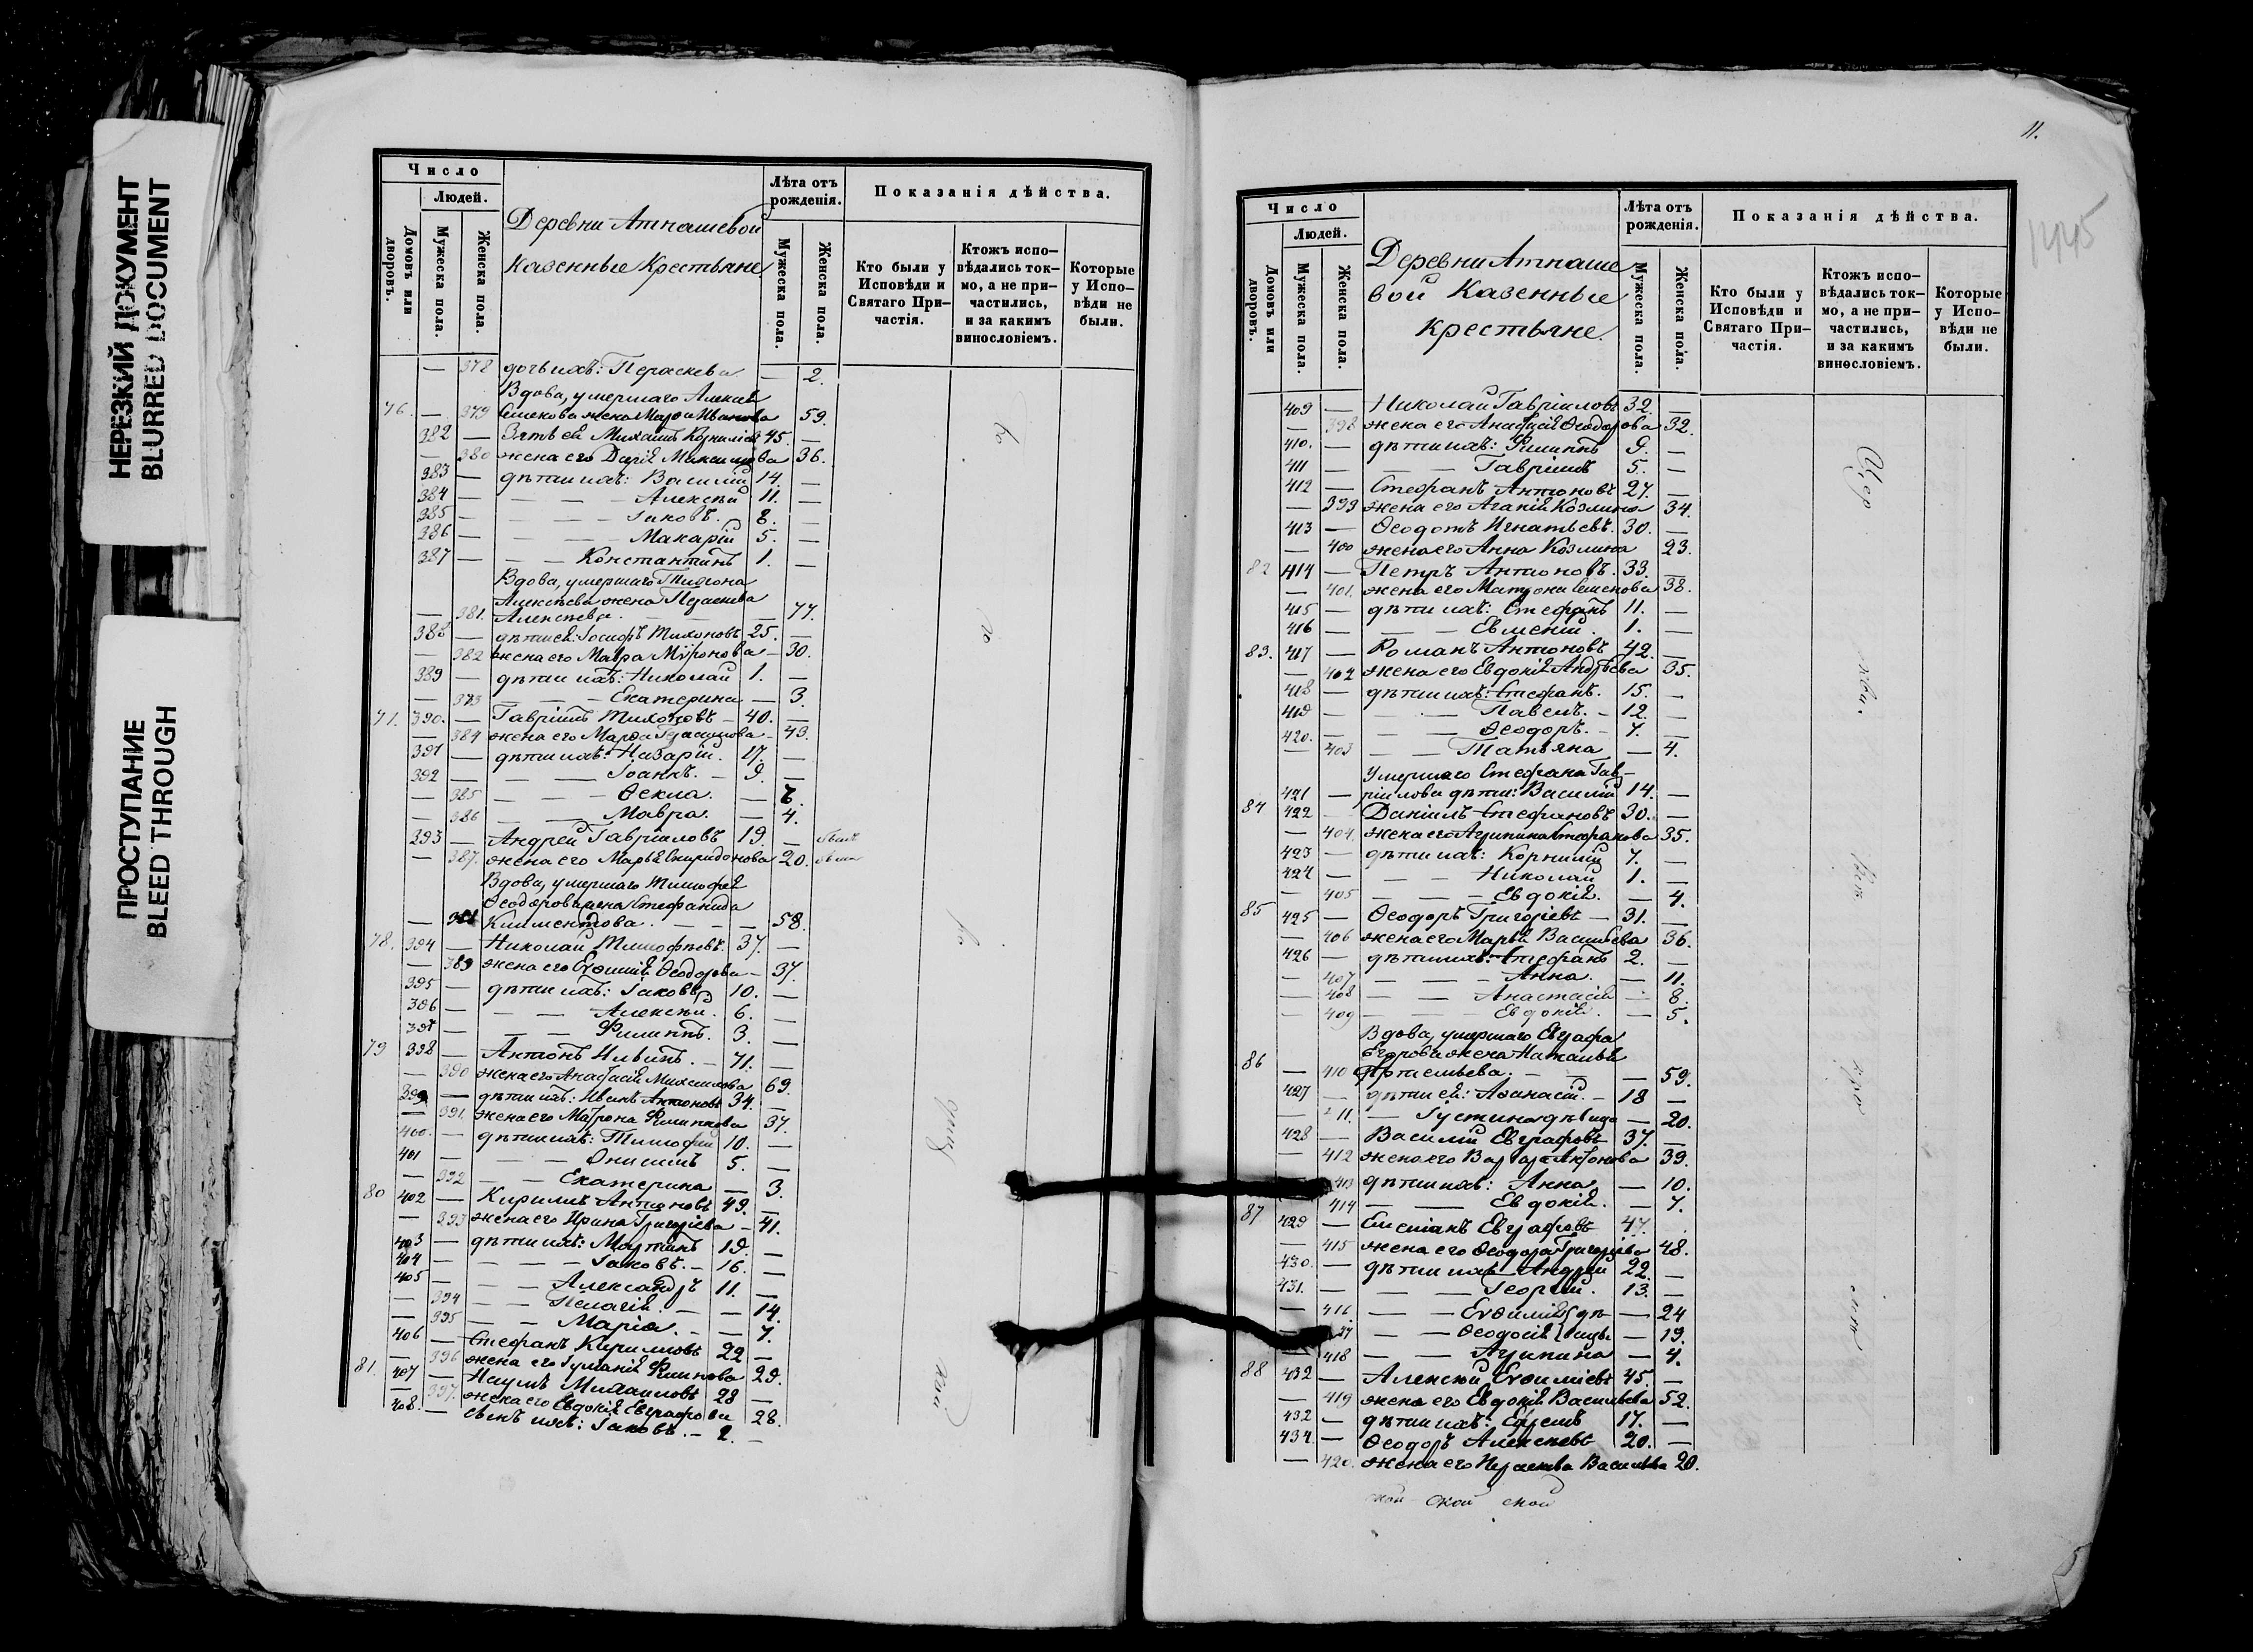 НЕРЕЗКИЙ ДОКУМЕНТ
BLURRED DOCUMENT
ПРОСТУПАНИЕ
BLEED THROUGH
Число
Людей.
Домовъ или дворовъ.
Мужеска пола.
Женска пола.
Деревни Атнашевой
казенные Крестьяне
Лѣта отъ рожденія.
Мужеска пола.
Женска пола.
Показанія дѣйства.
Кто были у Исповѣди и Святаго Причастія.
Ктожъ исповѣдались токмо, а не причастились, и за какимъ винословіемъ.
Которые у Исповѣди не были.
— 378 дочь ихъ: Параскева — 2.
Вдова, умершаго Алексѣя
76. — 379 Семенова жена Марѳа Иванова 59.
382 — Зять ея Михаилъ 45. —
— 380 жена его Дарія Максимова 36.
383 — дѣти ихъ: Василій 14. —
384 — — — Алексѣй 11. —
385 — — — Іаковъ. 8. —
386 — — — Макарій 5. —
387 — — — Константинъ 1. —
Вдова, умершаго Тихона
Алексѣева жена Параскева
— 381. Алексѣева. — — 77.
388 — дѣти ея: Іосифъ Тихоновъ 25. —
— 382 жена его Мавра Мѵронова — 30.
389 — дѣти ихъ: Николай 1. —
— 383 — — Екатерина — 3.
77. 390. — Гавріилъ Тихоновъ — 40. —
— 384 жена его Марѳа Герасимова — 43.
391 — дѣти ихъ: Назарій. 17. —
392 — — — Іоаннъ. — 9. —
— 385 — — Ѳекла. — 6.
— 386 — — Мавра. — 4.
393 — Андрей Гавріиловъ 19. —
— 387. жена его Марья Спиридонова 20.
Вдова, умершаго Тимофея
Ѳеодорова жена Стефанида
— 388 Климентова. — — — 58.
78. 394 — Николай Тимофѣевъ. 37. —
— 389 жена его Евѳимія Ѳеодорова — 37.
395 — дѣти ихъ: Іаковъ 10. —
396 — — — Алексѣй. 6. —
397 — — — Филиппъ. 3. —
79 398 — Антонъ Ильинъ. — 71. —
— 390 жена его Анаѳасія Михаилова 69.
399 — дѣти ихъ: Иванъ Антоновъ 34. —
— 391. жена его Матрона Филиппова 37.
400. — дѣти ихъ: Тимофей 10. —
401 — — — Онисимъ 5. —
— 392 — — Екатерина — 3.
80 402 — Кириллъ Антоновъ 49. —
— 393 жена его Ирина Григорьева — 41.
403 — дѣти ихъ: Мартинъ 19. —
404 — — — Іаковъ. — 16. —
405 — — — Александръ 11. —
— 394 — — Пелагія. — — 14.
— 395 — — Марія. — — 7.
406 — Стефанъ Кирилловъ 22 —
— 396 жена его Филипова 29.
81. 407 — Наумъ Михаиловъ 28 —
— 397. жена его Евдокія Евграфова 28.
408. — сынъ ихъ: Іаковъ. — 2. —
11.
1445
Число
Людей.
Домовъ или дворовъ.
Мужеска пола.
Женска пола.
Деревни Атнаше
вой Казенные
Крестьяне.
Лѣта отъ рожденія.
Мужеска пола.
Женска пола.
Показанія дѣйства.
Кто были у Исповѣди и Святаго Причастія.
Ктожъ исповѣдались токмо, а не причастились, и за какимъ винословіемъ.
Которые у Исповѣди не были.
409 — Николай Гавріиловъ 32. —
— 398 жена его Анаѳасія Ѳеодорова 32.
410. — дѣти ихъ: Филиппъ 9. —
411 — — — Гавріилъ 5. —
412 — Стефанъ Антоновъ 27. —
— 399 жена его Агапія Козмина 34.
413 — Ѳеодотъ Игнатьевъ. 30. —
— 400 жена его Анна Козмина 23.
82 414 — Петръ Антоновъ. 33. —
— 401. жена его Матрона Семенова 38.
415 — дѣти ихъ: Стефанъ 11. —
416 — — — Евменій. 1. —
83. 417 — Романъ Антоновъ 42. —
— 402 жена его Евдокія Андрѣева 35.
418 — дѣти ихъ: Стефанъ. 15. —
419 — — — Павелъ. — 12. —
420. — — — Ѳеодоръ. — 7. —
— 403 — — Татьяна — 4.
Умершаго Стефана Гав-
421 — ріилова дѣти: Василій 14. —
84 422 — Даніилъ Стефановъ 30. —
— 404. жена его Агрипина Стефанова 35.
423 — дѣти ихъ: Корнилій 7. —
424 — — — Николай 1. —
— 405 — — Евдокія. — 4.
85 425 — Ѳеодоръ Григоріевъ — 31. —
— 406 жена его Марья Васильева 36.
426 — дѣти ихъ: Стефанъ 2. —
— 407 — — — Анна. — 11.
— 408 — — Анастасія — 8.
— 409 — — Евдокія. — 5.
Вдова, умершаго Евграфа
Егорова жена Наталья
86 — 410 Артемьева. — — — 59.
427 — дѣти ея: Аѳанасій. — 18 —
— 411. — Іустина дѣвица — 20.
428 — Василій Евграфовъ 37. —
— 412 жена его Варвара Антонова 39.
413 дѣти ихъ: Анна — 10.
414 — — Евдокія. — 7.
87 429 — Емеліанъ Евграфовъ 47.
— 415 жена его Ѳеодора Григорьева 48.
430. — дѣти ихъ Андрей 22. —
431. — — — Георгій. 13. —
— 416 — — Евѳимія дѣ — 24
417 — — Ѳеодосія вицы — 19.
418 — — Агрипина — 4.
88 432 — Алексѣй Евѳиміевъ 45. —
— 419 жена его Евдокія Васильева 52.
432 — дѣти ихъ: Ефремъ 17. —
434. — Ѳеодоръ Алексѣевъ 20. —
— 420. жена его Параскева Васильева 20.
ской ской ской